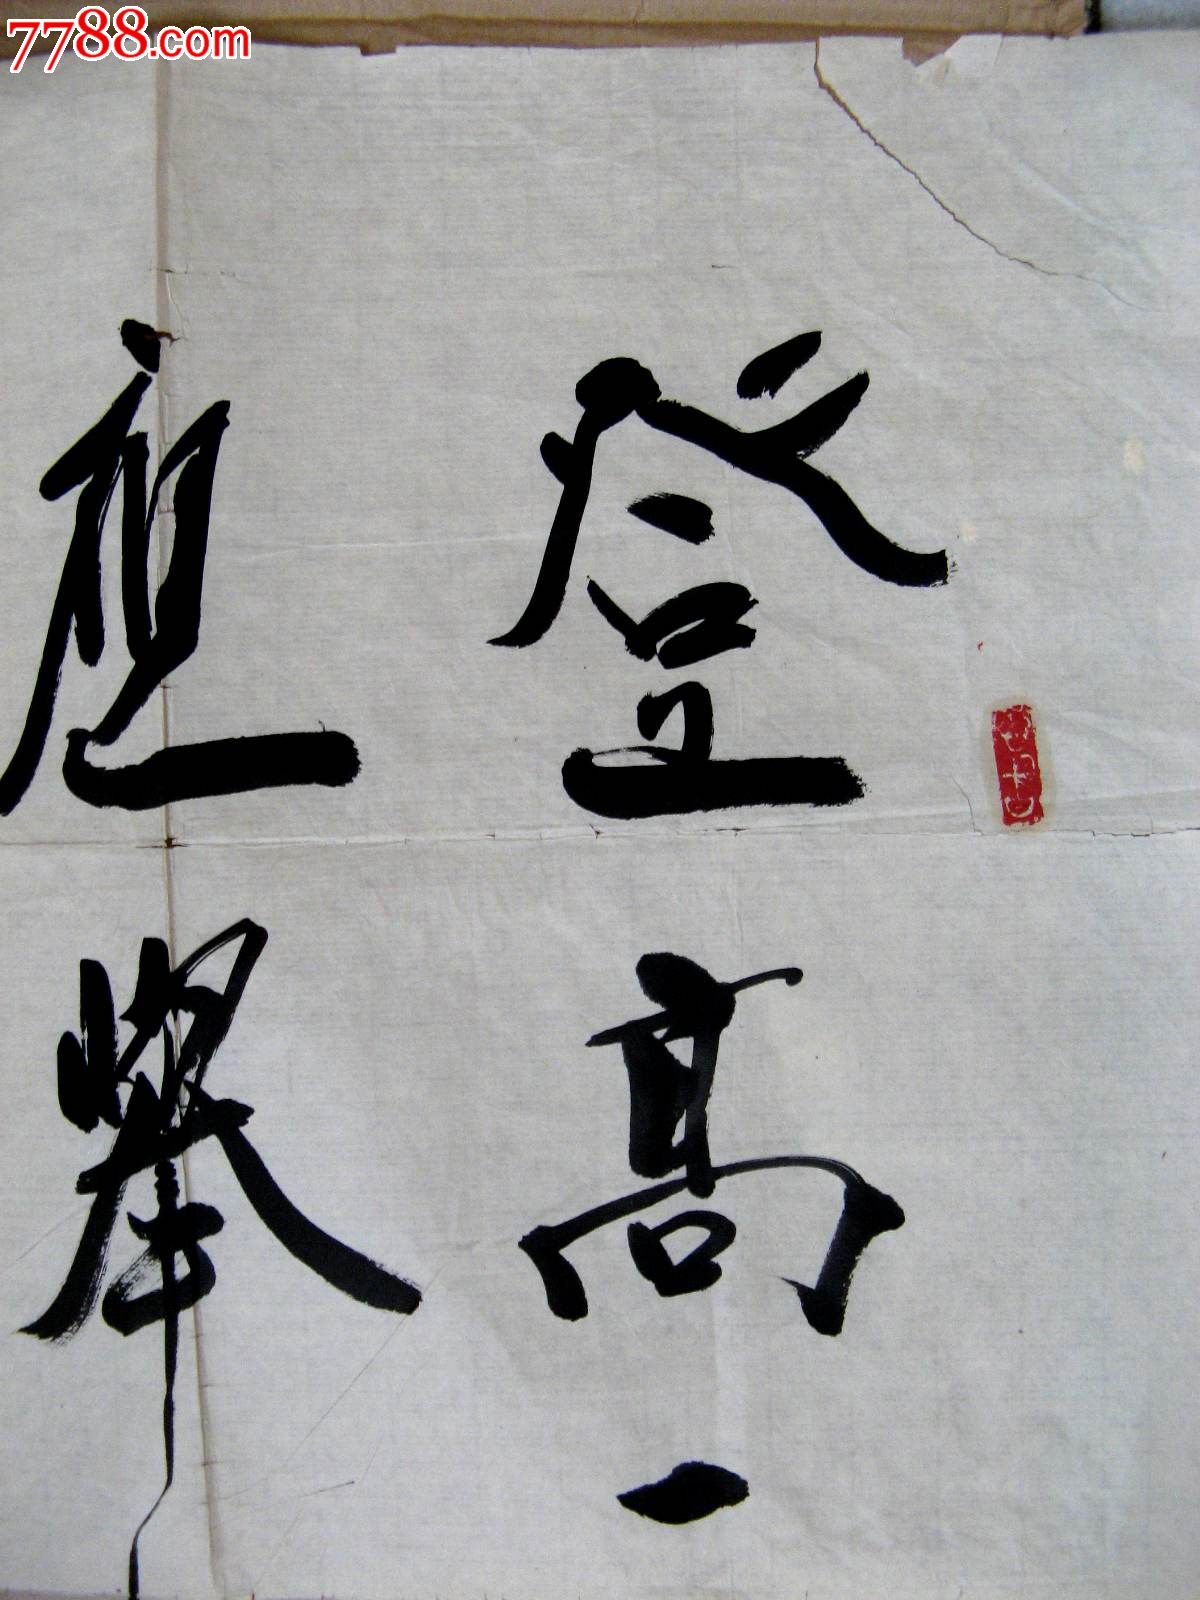 7788.com
登高一
應舉